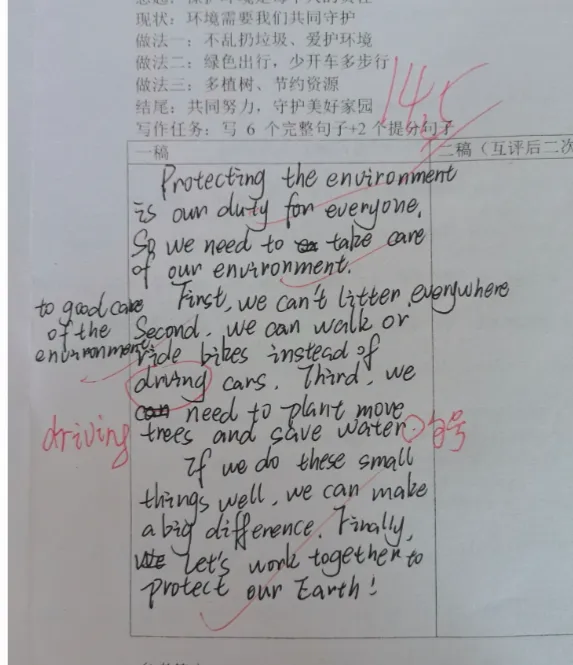 现状：环境需要我们共同守护
做法一：不乱扔垃圾、爱护环境
做法二：绿色出行，少开车多步行
做法三：多植树、节约资源
结尾：共同努力，守护美好家园
写作任务：写 6 个完整句子+2 个提分句子
14.5
一稿
二稿（互评后二次
Protecting the environment
is our duty for everyone.
So we need to take care
of our environment.
First, we can't litter everywhere
to good care
of the
environment
Second, we can walk or
ride bikes instead of
driving cars. Third, we
need to plant move
driving
trees and save water.
句号
If we do these small
things well, we can make
a big difference. Finally,
Let's work together to
protect our Earth!